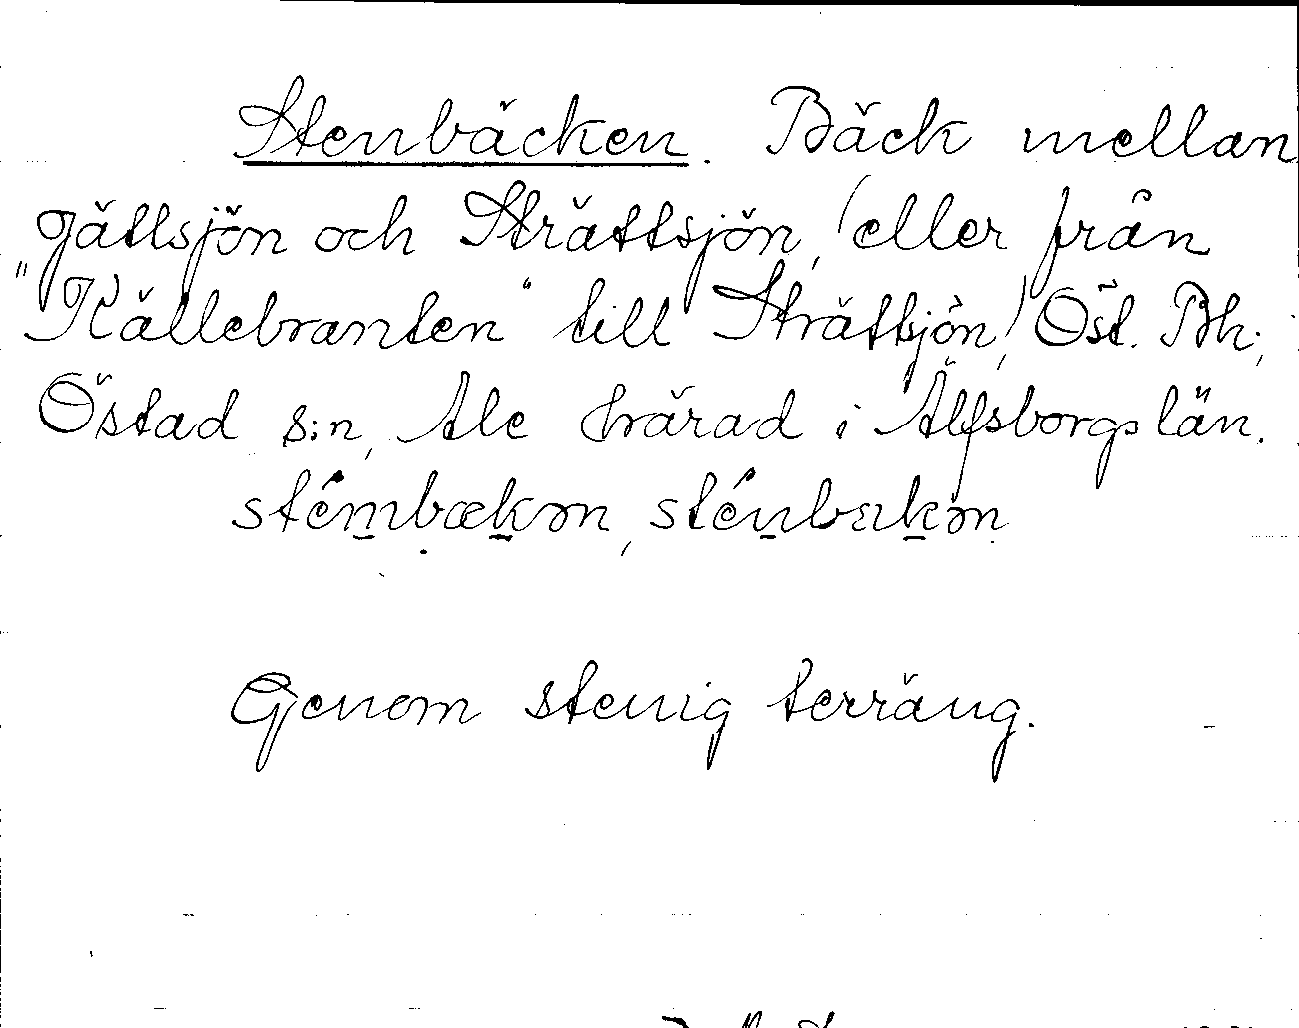 Stenbäcken. Bäck mellan
Gättsjön och Strättsjön, (eller från
"Källebranten" till Strättsjön), Öst. Bh.;
Östad s:n, Ale härad i Älfsborgs län.
Genom stenig terräng.